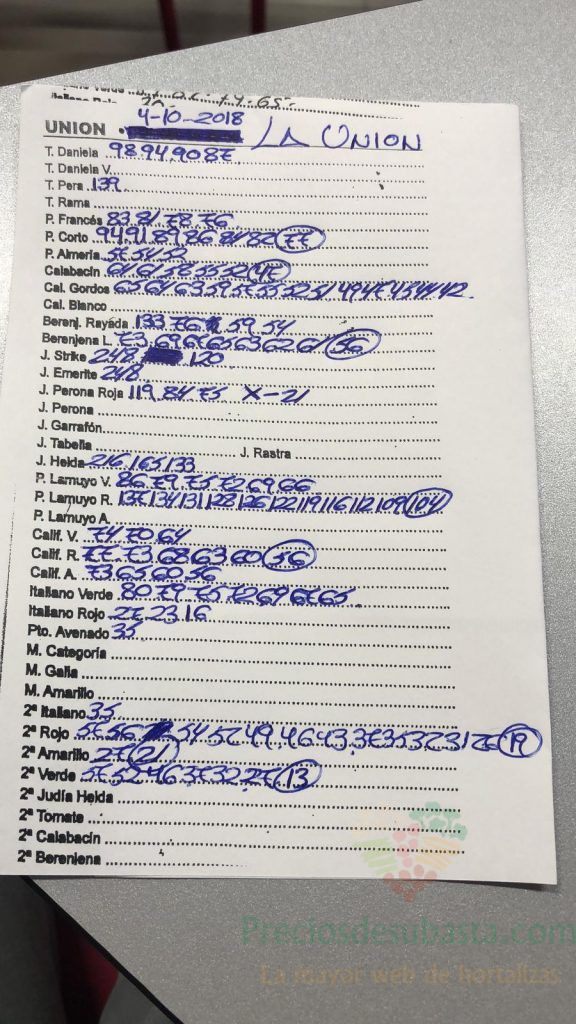 4-10-2018
UNION LA UNION
T. Daniela 98 94 90 87
T. Daniela V.
T. Pera 139
T. Rama
P. Francés 83 81 78 76
P. Corto 94 91 89 86 84 82 77
P. Almería 57 54 52
Calabacín 64 61 58 55 52 47
Cal. Gordos 65 64 63 59 57 55 52 51 49 47 45 44 42
Cal. Blanco
Berenj. Rayada 133 76 59 54
Berenjena L. 73 69 67 65 63 62 61 56
J. Strike 248 120
J. Emerite 248
J. Perona Roja 119 84 75 X-21
J. Perona
J. Garrafón
J. Tabella J. Rastra
J. Helda 216 165 133
P. Lamuyo V. 86 79 75 72 69 66
P. Lamuyo R. 137 134 131 128 126 122 119 116 112 109 104
P. Lamuyo A.
Calif. V. 74 70 64
Calif. R. 77 73 68 63 60 56
Calif. A. 73 65 60 56
Italiano Verde 80 79 75 72 69 67 65
Italiano Rojo 27 23 16
Pto. Avenado 35
M. Categoría
M. Galia
M. Amarillo
2ª Italiano 35
2ª Rojo 57 56 54 52 49 46 43 37 35 32 31 27 19
2ª Amarillo 27 21
2ª Verde 57 52 46 37 32 27 13
2ª Judía Helda
2ª Tomate
2ª Calabacín
2ª Berenjena
Preciosdesubasta.com
La mayor web de hortalizas